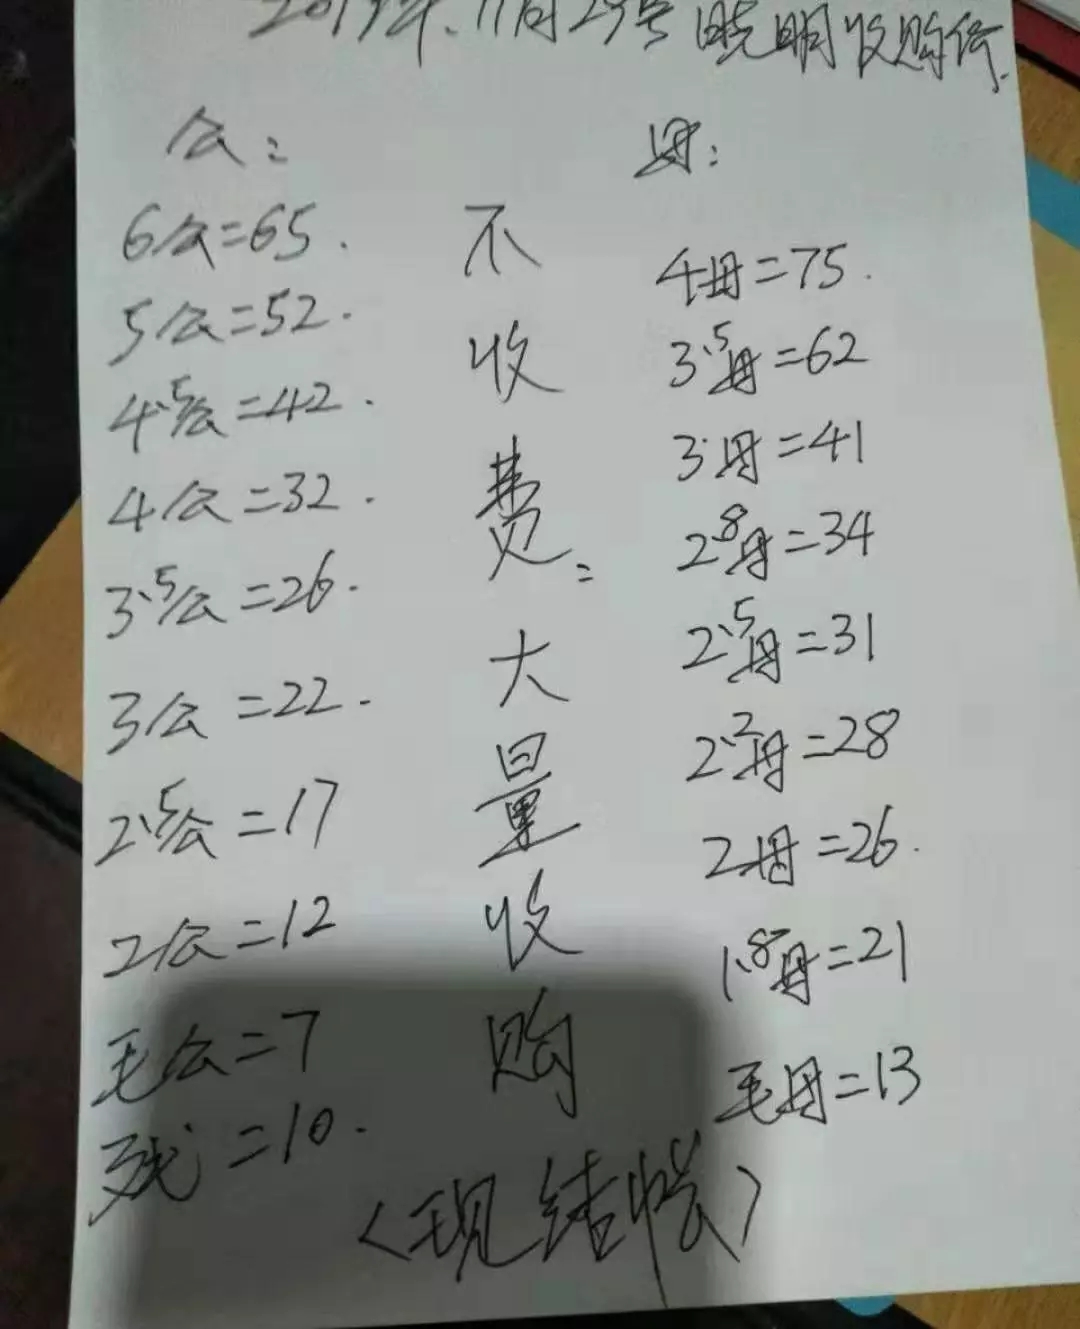 2019年.11月29号晓明收购价.
公:
6公=65.
5公=52.
4.5公=42.
4公=32.
3.5公=26.
3公=22.
2.5公=17
2公=12
毛公=7
残=10.
不收费:大量收购
母:
4母=75.
3.5母=62
3母=41
2.8母=34
2.5母=31
2.2母=28
2母=26.
1.8母=21
毛母=13
<现结帐>